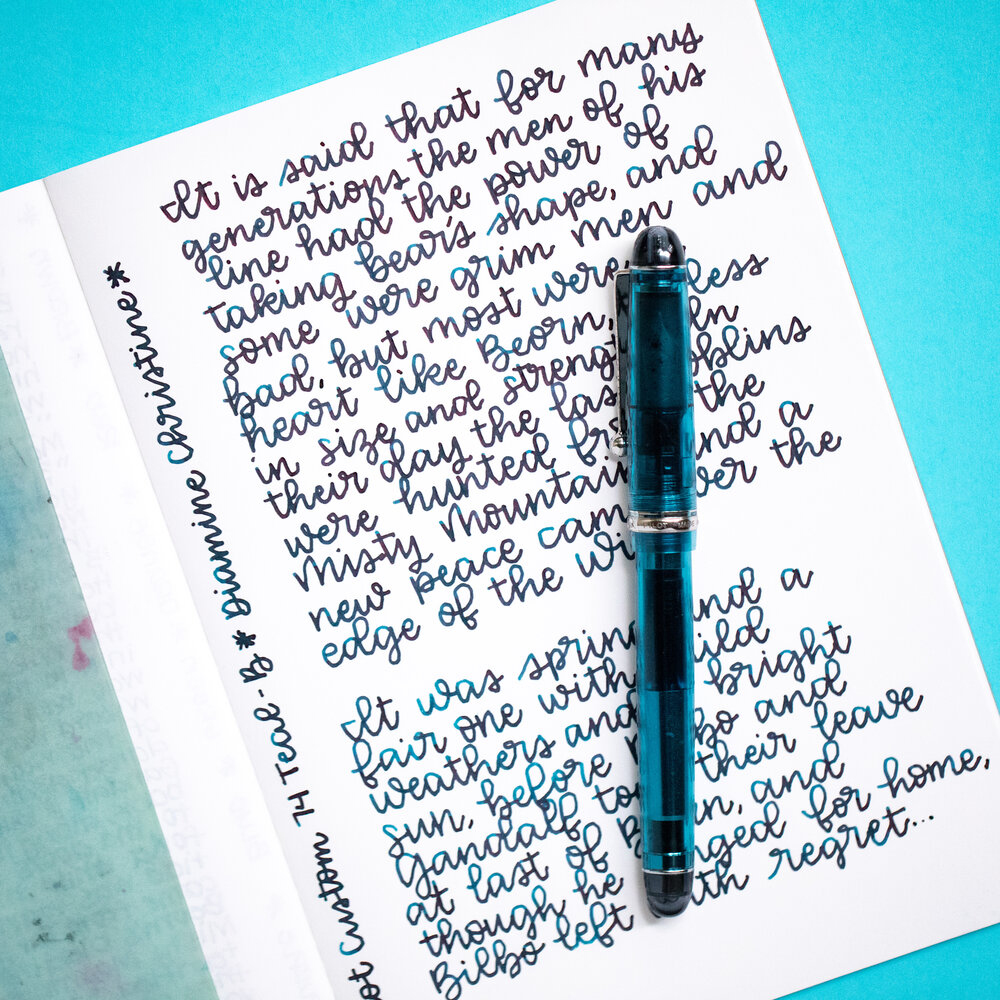 It is said that for many
generations the men of his
line had the power of
taking bear's shape, and
some were grim men and
bad, but most were
heart like Beorn, less
in size and strength In
their day the last goblins
were hunted the
Misty Mountain and a
new peace came over the
edge of the
It was spring and a
fair one with mild
weathers and bright
sun, before Bilbo and
Gandalf took their leave
at last of and
though he for home,
Bilbo left with regret...
Custom 74 Teal - B * Diamine Christine *